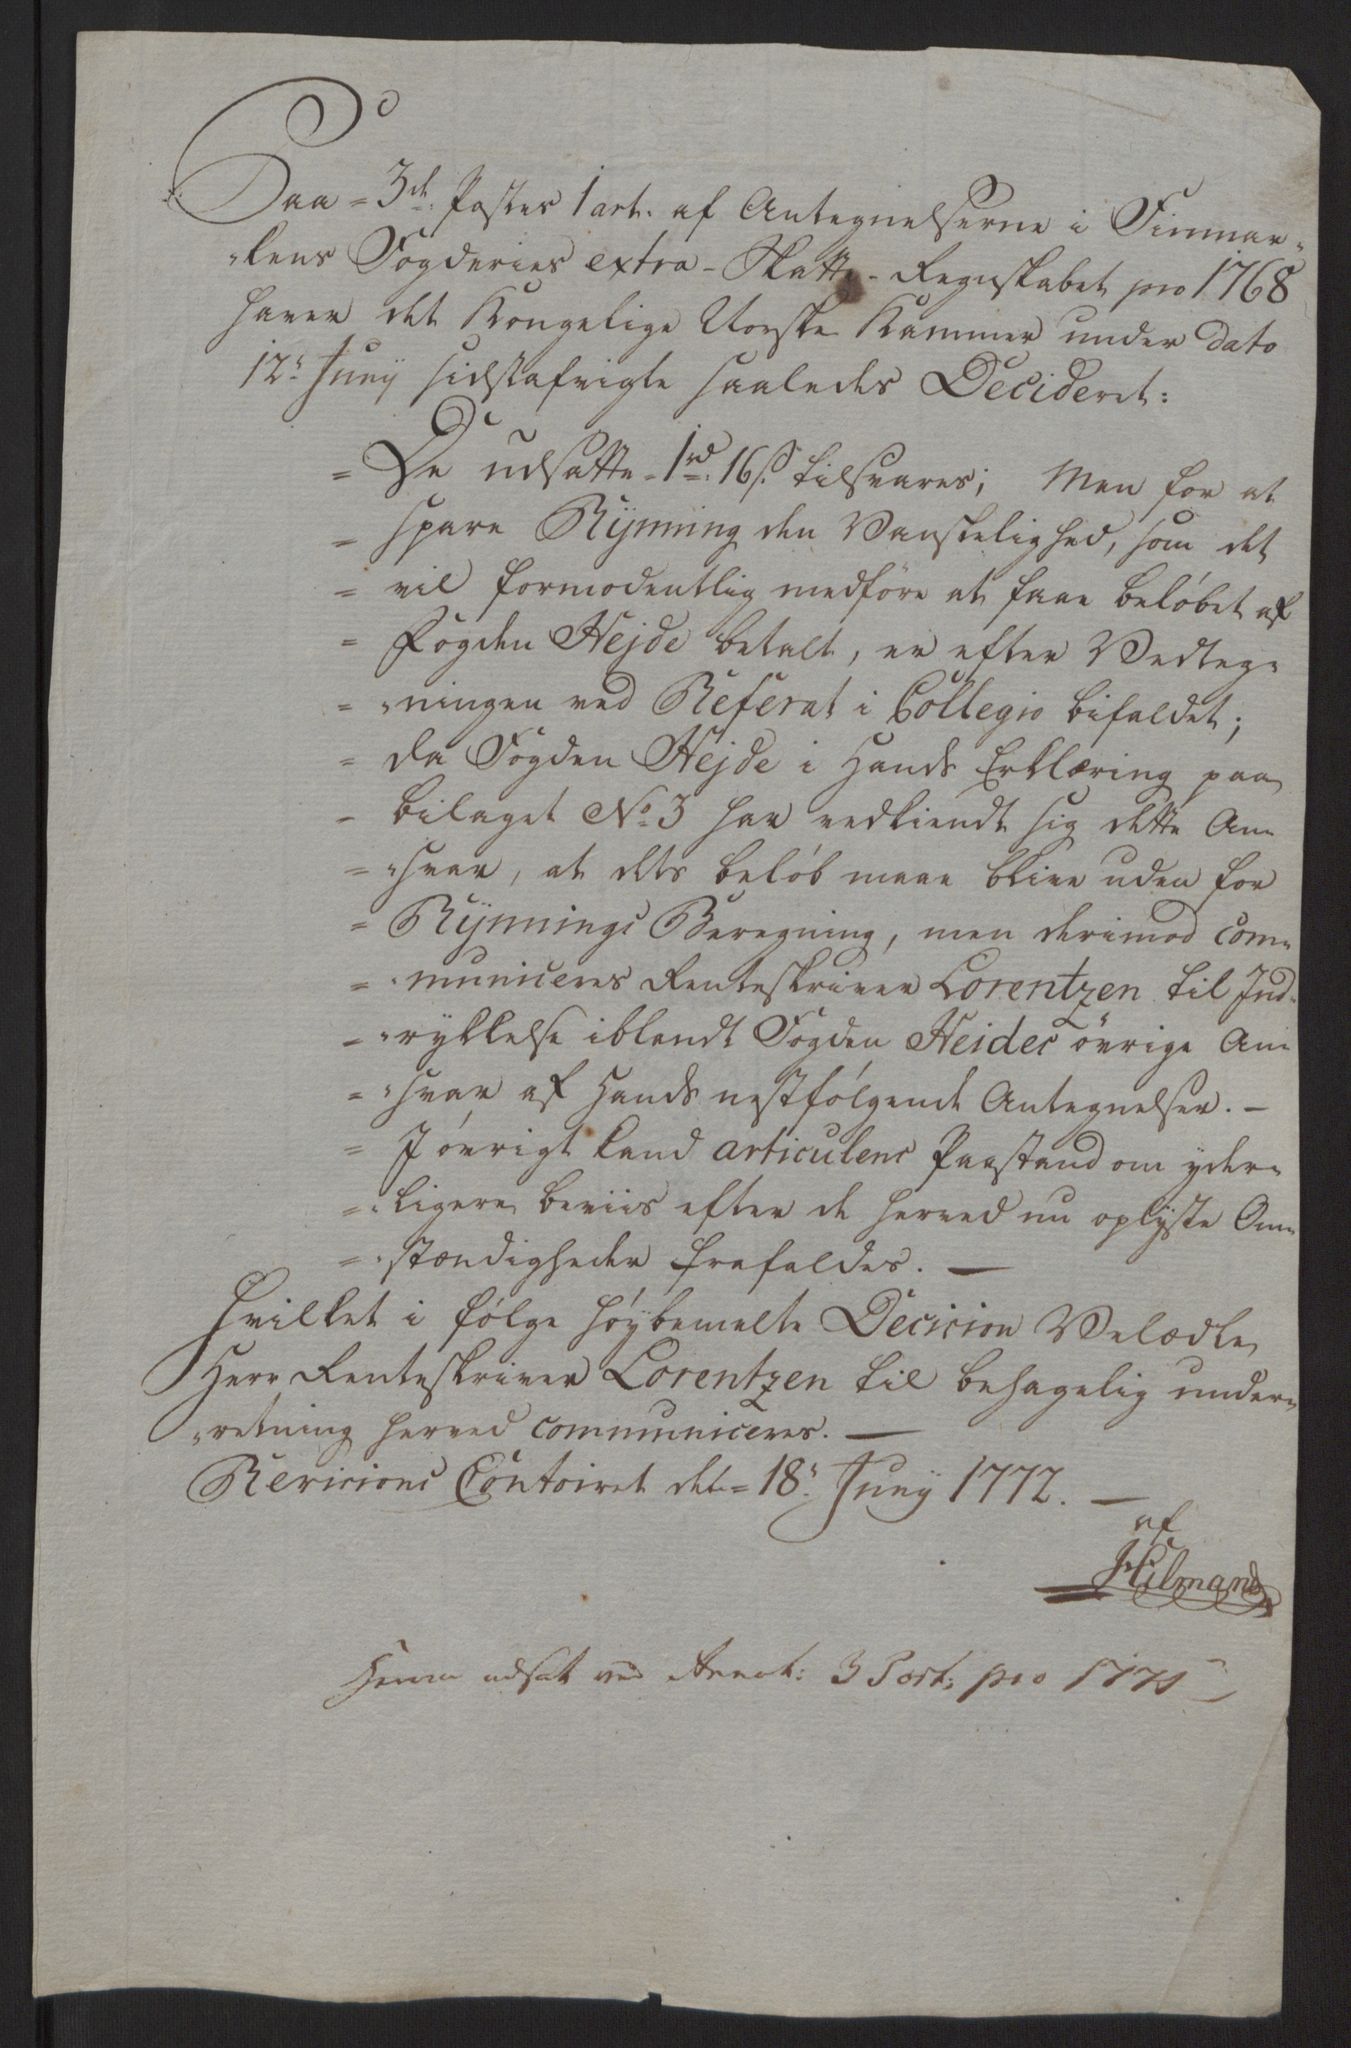 Paa 3de. Postes 1 art. af Antegnelserne i Finmar-
kens Fogderies extra-Skatte-Regnskabet pro 1768
haver det Kongelige Norske Kammer under dato
12te Junij sidstafvigte saaledes Decideret:
= De udsatte 1rd. 16s. tilsvares; Men for at
= spare Rynning den Vanskelighed, som det
= vil formodentlig medföre at faae beløbet af
= Fogden Hejde betalt, er efter Vedteg-
= ningen ved Referat i Collegio bifaldet;
= da Fogden Hejde i Hands Erklæring paa
= bilaget No. 3 har vedkiendt sig dette An-
= svar, at dets beløb maae blive uden for
= Rynnings Beregning, men derimod com-
= municeres Renteskriver Lorentzen til Ind-
= rykkelse iblandt Fogden Heides övrige An-
= svar af Hands nestfølgende Antegnelser. —
= I øvrigt kand articulens Paastand om yder-
= ligere beviis efter de herved nu oplyste Om-
= stændigheder frafaldes. —
Hvilket i følge høybemelte Decision Velædle
Herr Renteskriver Lorentzen til behagelig under-
retning herved communiceres. —
Revisions Contoiret det = 18de Junij 1772. —
af
Hilmand
udsat ved Annot: 3 Post: pro 1771